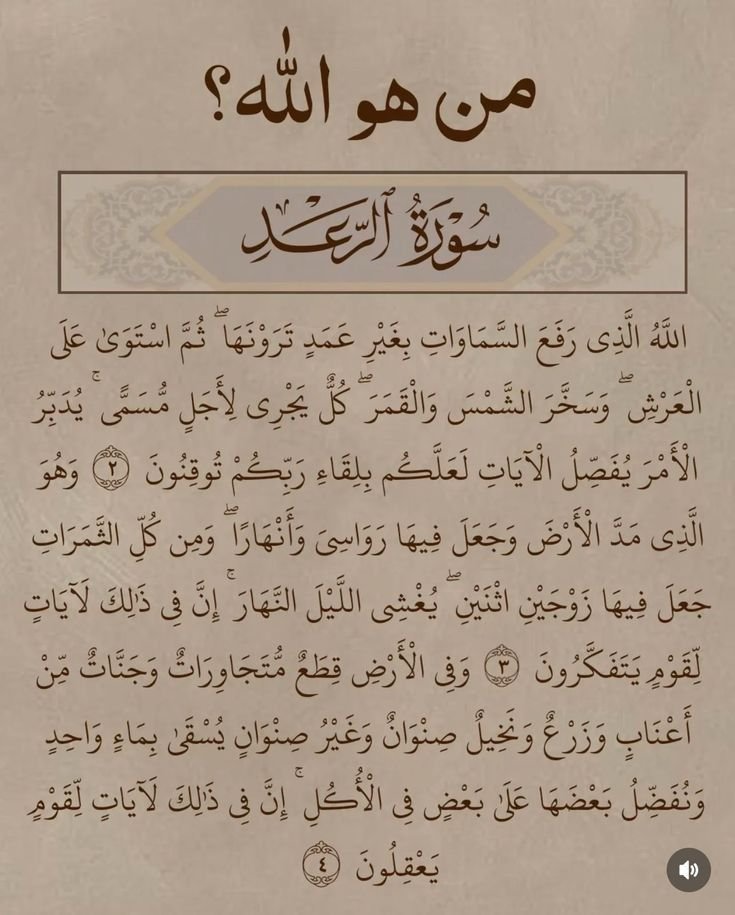 من هو الله؟
سُورَةُ ٱلرَّعْدِ
اللَّهُ الَّذِى رَفَعَ السَّمَاوَاتِ بِغَيْرِ عَمَدٍ تَرَوْنَهَا ۖ ثُمَّ اسْتَوَىٰ عَلَى
الْعَرْشِ ۖ وَسَخَّرَ الشَّمْسَ وَالْقَمَرَ ۖ كُلٌّ يَجْرِى لِأَجَلٍ مُّسَمًّى ۚ يُدَبِّرُ
الْأَمْرَ يُفَصِّلُ الْآيَاتِ لَعَلَّكُم بِلِقَاءِ رَبِّكُمْ تُوقِنُونَ ٢ وَهُوَ
الَّذِى مَدَّ الْأَرْضَ وَجَعَلَ فِيهَا رَوَاسِىَ وَأَنْهَارًا ۖ وَمِن كُلِّ الثَّمَرَاتِ
جَعَلَ فِيهَا زَوْجَيْنِ اثْنَيْنِ ۖ يُغْشِى اللَّيْلَ النَّهَارَ ۚ إِنَّ فِى ذَٰلِكَ لَآيَاتٍ
لِّقَوْمٍ يَتَفَكَّرُونَ ٣ وَفِى الْأَرْضِ قِطَعٌ مُّتَجَاوِرَاتٌ وَجَنَّاتٌ مِّنْ
أَعْنَابٍ وَزَرْعٌ وَنَخِيلٌ صِنْوَانٌ وَغَيْرُ صِنْوَانٍ يُسْقَىٰ بِمَاءٍ وَاحِدٍ
وَنُفَضِّلُ بَعْضَهَا عَلَىٰ بَعْضٍ فِى الْأُكُلِ ۚ إِنَّ فِى ذَٰلِكَ لَآيَاتٍ لِّقَوْمٍ
يَعْقِلُونَ ٤